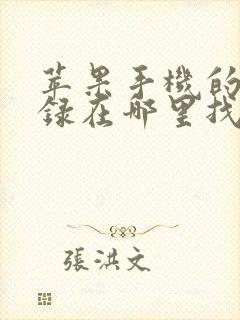 苹果手機的
錄在哪里找
張洪文